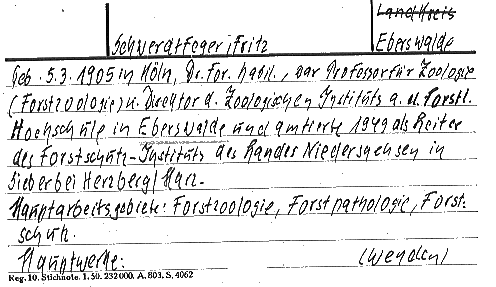 Landkreis
Schwerdtfeger, Fritz Eberswalde
Geb. 5.3.1905 in Köln, Dr. For. habil., war Professor für Zoologie
(Forstzoologie) u. Direktor d. Zoologischen Instituts a. d. Forstl.
Hochschule in Eberswalde und amtierte 1949 als Leiter
des Forstschutz-Instituts des Landes Niedersachsen in
Sieber bei Herzberg/Harz.
Hauptarbeitsgebiete: Forstzoologie, Forstpathologie, Forst-
schutz.
Hauptwerke: (wenden)
Reg. 10. Stichnote. 1. 50. 232000. A. 803. S. 4062